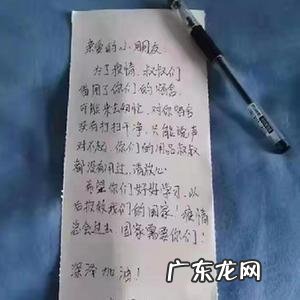 亲爱的小朋友
为了疫情,叔叔们
借用了你们的宿舍
可能来去匆忙,对你宿舍
没有打扫干净,只能说声
对不起,你们的用品叔叔
都没有用过,请放心
希望你们好好学习,以
后报效我们的国家!疫情
总会过去 国家需要你们!
深泽加油!
广东龙网